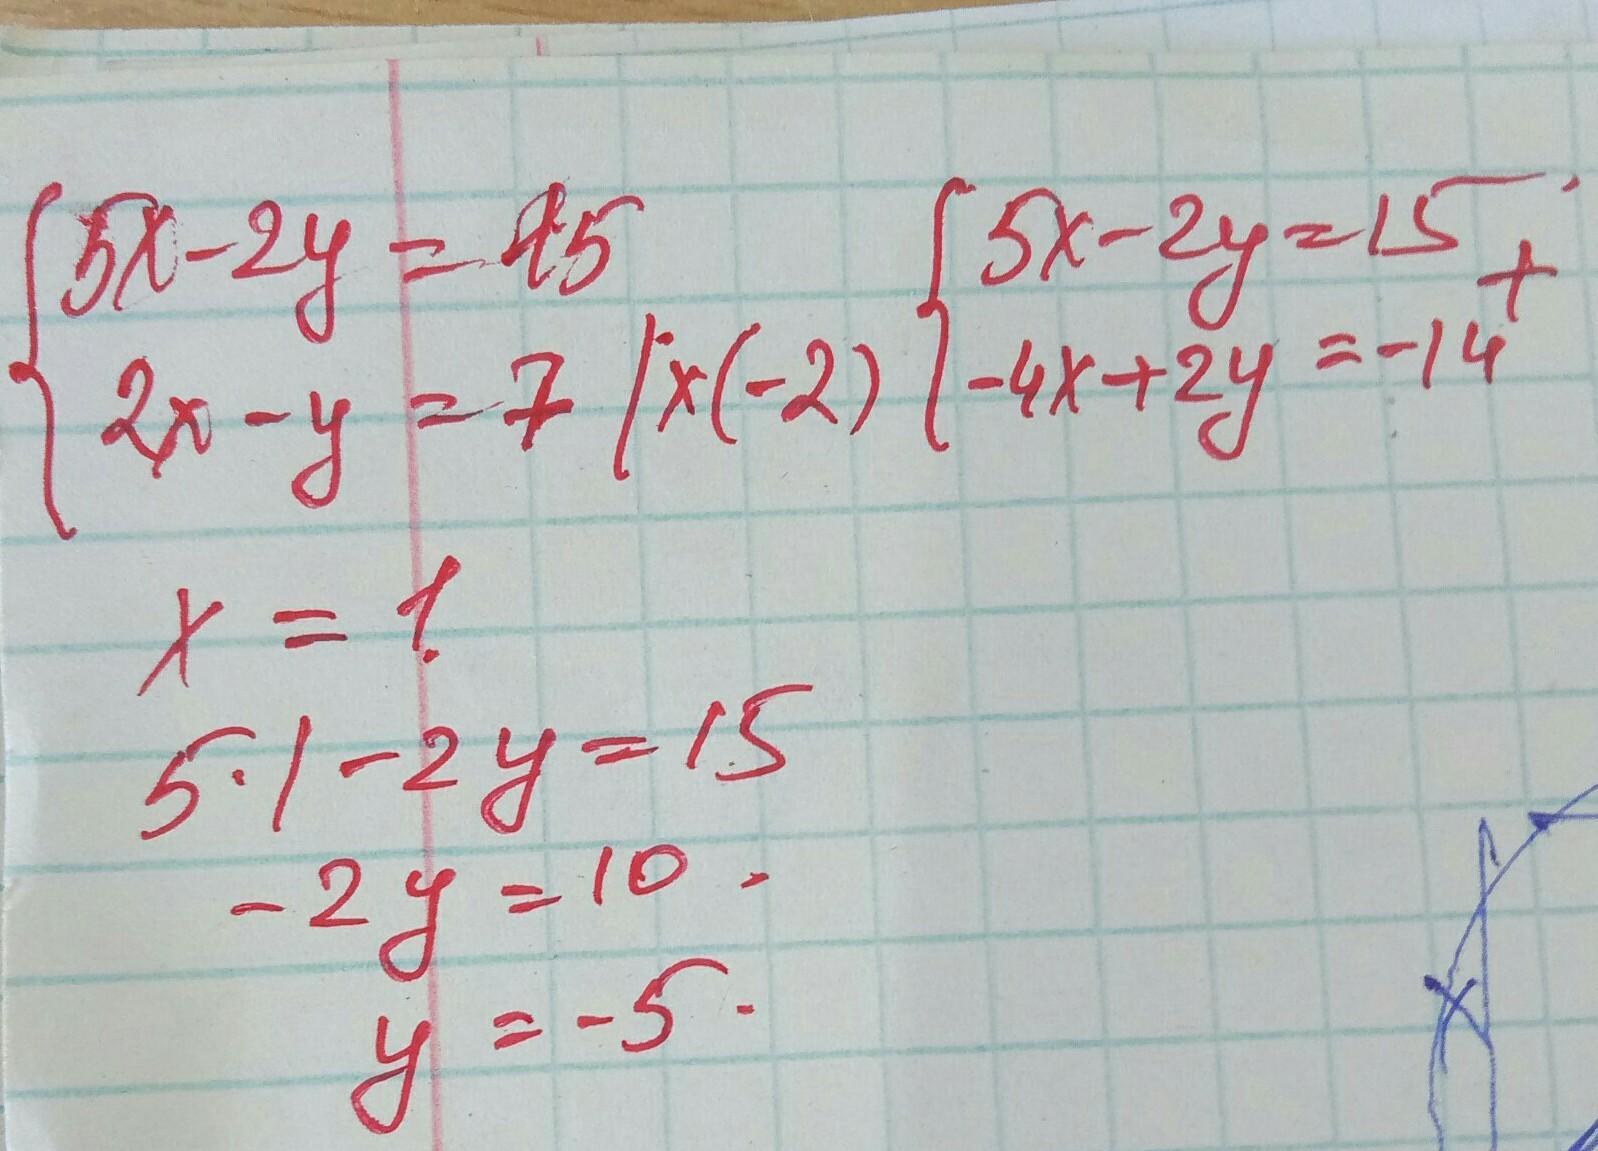 5x-2y=15
2x-y=7 |x(-2)
5x-2y=15 +
-4x+2y=-14
x=1.
5·1-2y=15
-2y=10.
y=-5.